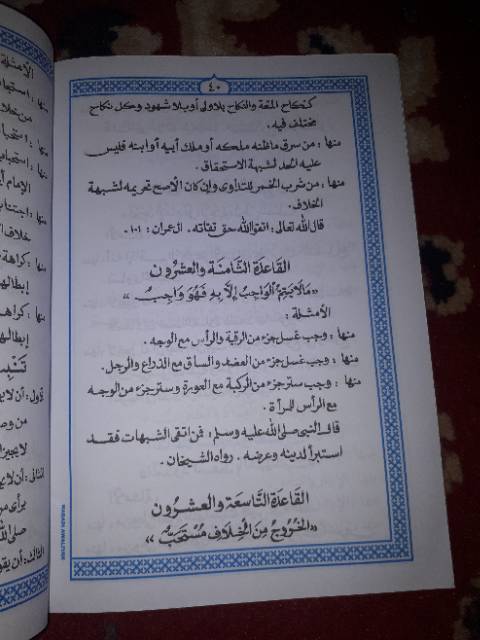 ٤٠
كنكاح المتعة والنكاح بلا ولي أو بلا شهود وكل نكاح
مختلف فيه.
منها : من سرق ما ظنه ملكه أو ملك أبيه أو ابنه فليس
عليه الحد لشبهة الاستحقاق.
منها : من شرب الخمر للتداوى وإن كان الأصح تحريمه لشبهة
الخلاف.
قال الله تعالى : اتقوا الله حق تقاته. ال عمران : ١٠١
القاعدة الثامنة والعشرون
«مالا يتم الواجب إلا به فهو واجب»
الأمثلة :
منها : وجب غسل جزء من الرقبة والرأس مع الوجه.
منها : وجب غسل جزء من العضد والساق مع الذراع والرجل.
منها : وجب ستر جزء من الركبة مع العورة وستر جزء من الوجه
مع الرأس للمرأة.
قال النبي صلى الله عليه وسلم : فمن اتقى الشبهات فقد
استبرأ لدينه وعرضه. رواه الشيخان.
القاعدة التاسعة والعشرون
«الخروج من الخلاف مستحب»
الأمثلة
منها : استحباب
من خلاف
منها : استحباب
منها : استحباب
الإمام
منها : اجتناب
خلاف
منها : كراهة
إبطالها
منها : كراهة
إبطالها
الأول : أن لا
من
الثانى : أن لا
صلى الله
الثالث : أن يقوى